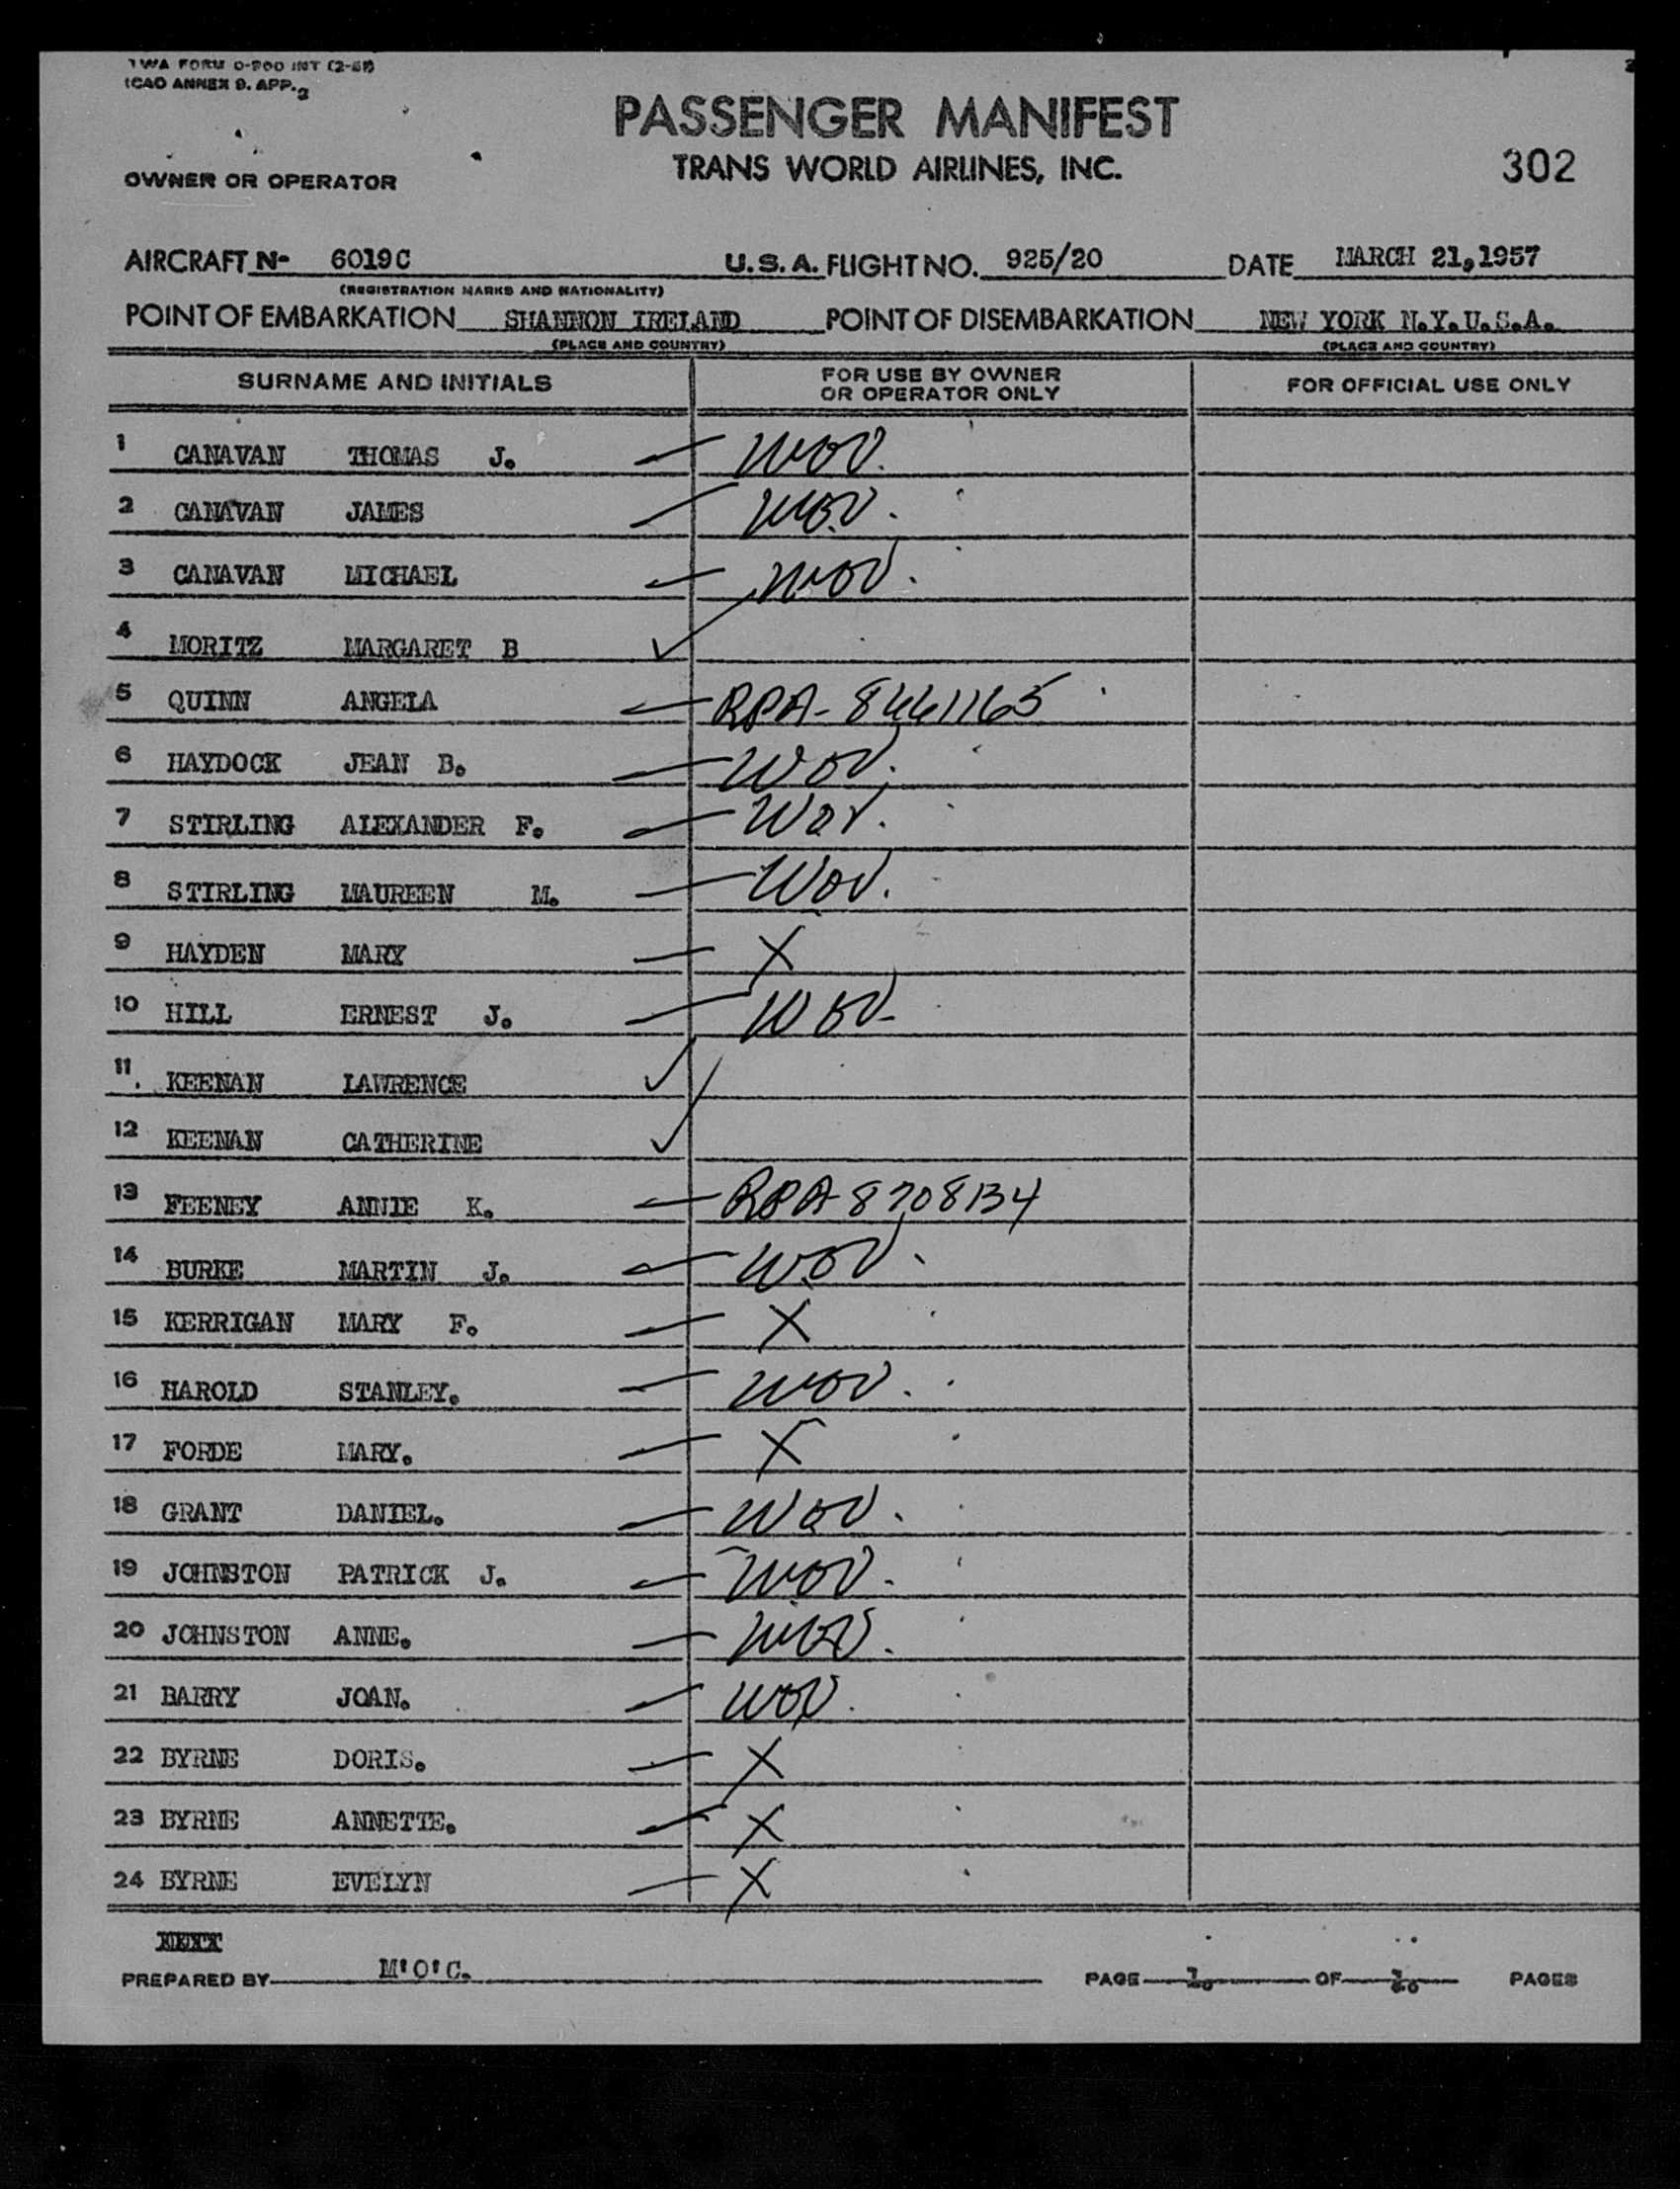 TWA FORM O-200 INT (2-51)
ICAO ANNEX 9. APP. 2
PASSENGER MANIFEST
TRANS WORLD AIRLINES, INC.
302
OWNER OR OPERATOR
AIRCRAFT N- 6019C U.S.A. FLIGHT NO. 925/20 DATE MARCH 21,1957
(REGISTRATION MARKS AND NATIONALITY)
POINT OF EMBARKATION SHANNON IRELAND POINT OF DISEMBARKATION NEW YORK N.Y.U.S.A.
(PLACE AND COUNTRY) (PLACE AND COUNTRY)
SURNAME AND INITIALS FOR USE BY OWNER OR OPERATOR ONLY FOR OFFICIAL USE ONLY
1 CANAVAN THOMAS J. WOV.
2 CANAVAN JAMES WOV.
3 CANAVAN MICHAEL WOV.
4 MORITZ MARGARET B
5 QUINN ANGELA RPA-8661165
6 HAYDOCK JEAN B. WOV.
7 STIRLING ALEXANDER F. WOV.
8 STIRLING MAUREEN M. WOV.
9 HAYDEN MARY X
10 HILL ERNEST J. WOV
11. KEENAN LAWRENCE
12 KEENAN CATHERINE
13 FEENEY ANNIE K. RPA-8708134
14 BURKE MARTIN J. WOV.
15 KERRIGAN MARY F. X
16 HAROLD STANLEY. WOV.
17 FORDE MARY. X
18 GRANT DANIEL. WOV.
19 JOHNSTON PATRICK J. WOV.
20 JOHNSTON ANNE. WOV.
21 BARRY JOAN. WOV.
22 BYRNE DORIS. X
23 BYRNE ANNETTE. X
24 BYRNE EVELYN X
PREPARED BY M'O'C. PAGE OF PAGES